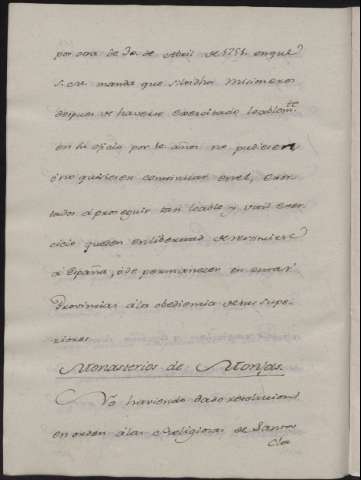 por otra de 30. de Abril de 1751. en que
S. M. manda que si dhos Misioneros
despues de haverse exercitado loablem.te
en su oficio por 10 años no pudieren
ó no quisieren continuar en el, exor
tados á proseguir tan loable y util exer
cicio queden en libertad de venirse
a España, ó de permanecer en estas
Provincias á la obediencia de sus Supe-
riores
Monasterios de Monjas.
No haviendo dado resolucion
en orden á las Religiosas de Santa
Cla